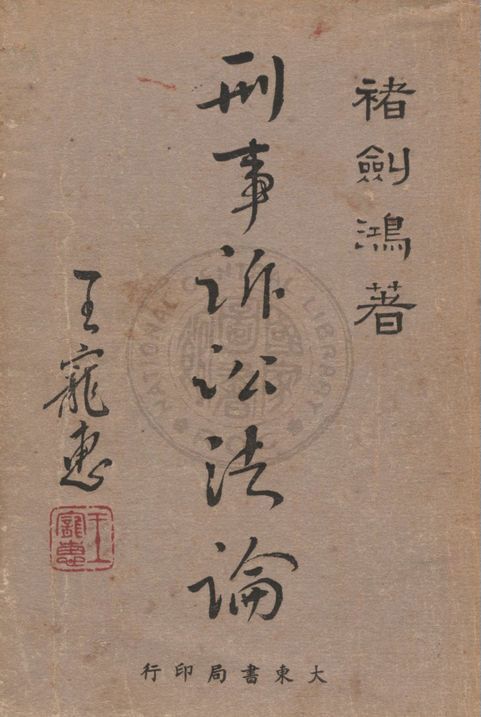 褚劍鴻著
刑事訴訟法論
王寵惠
王寵惠
大東書局印行
NATIONAL CENTRAL LIBRARY